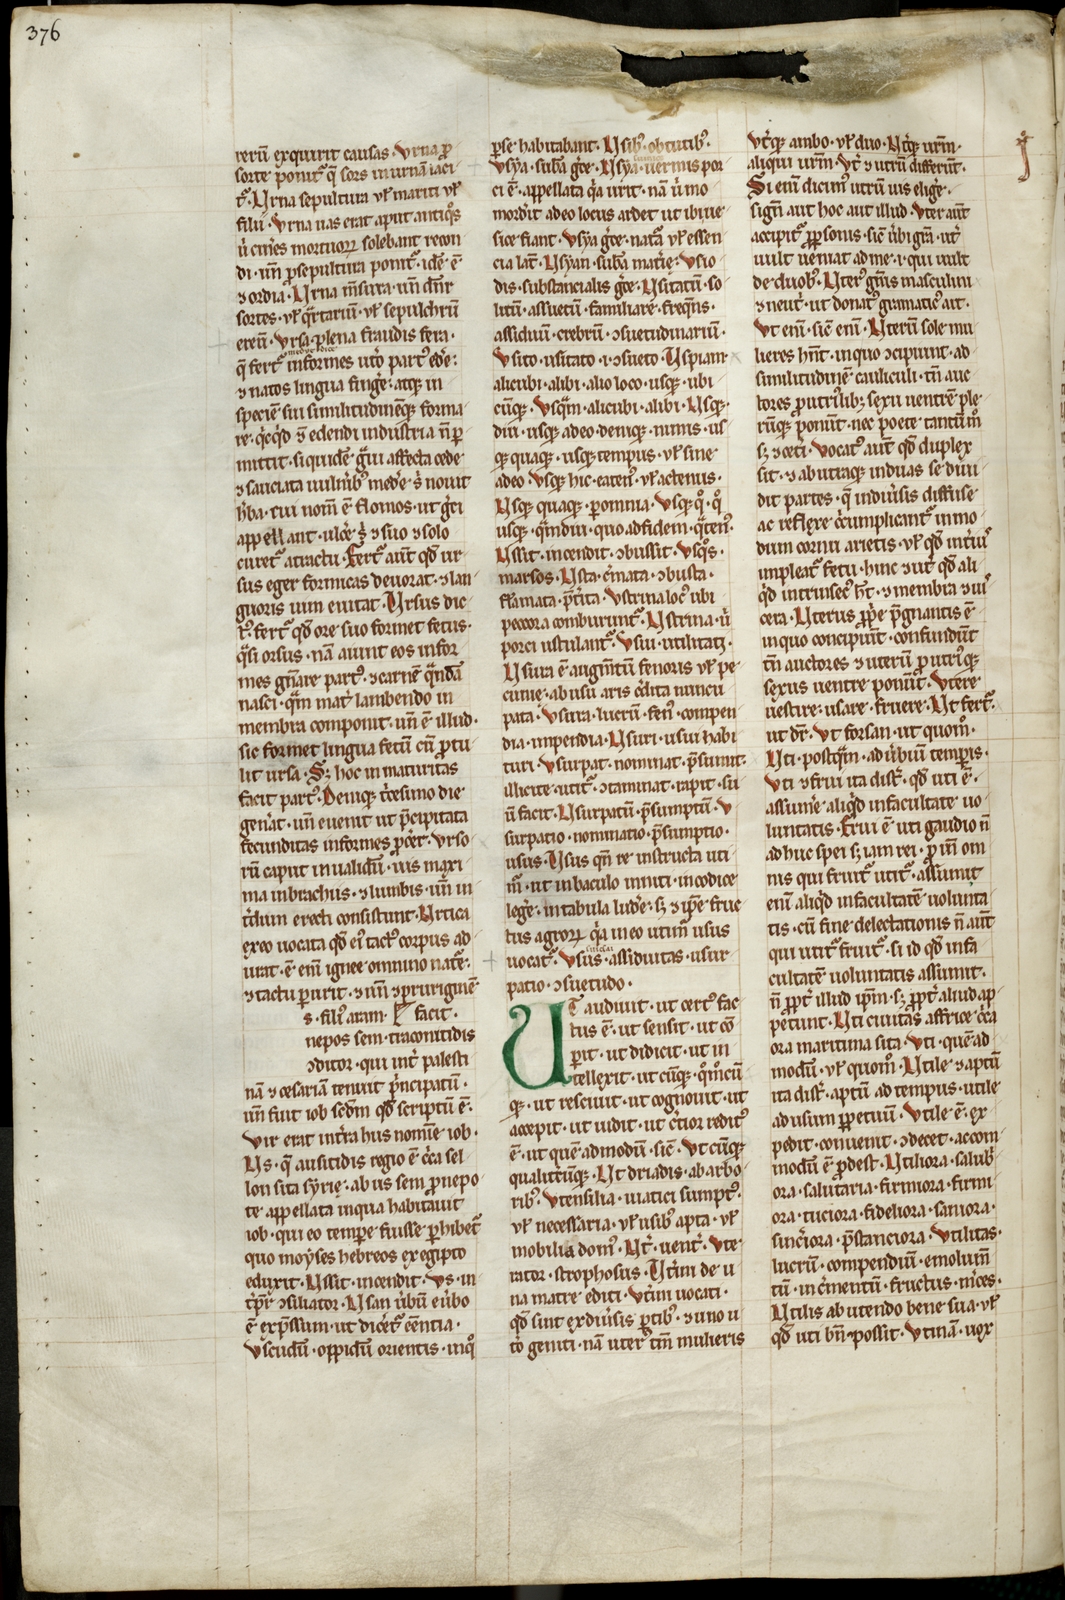 376
rerū exquirit causas · Vrna ꝓ
sorte ponit᷑ q̄ sors in urnā iaci
t᷑ · Vrna sepultura ul̓ mariti ul̓
filii · Vrna uas erat aput antiq̊s
ū cin̄es mortuoꝝ solebant recon
di · un̄ ꝓ sepultura ponit᷑ · idē ē
⁊ ordia · Vrna m̄sura · un̄ dn̄r
sortes · ul̓ q̄rtariū · ul̓ sepulchrū
ereū · Vrsa · plena fraudis fera ·
q̄ fert᷑ informes utō part᷑ ede̅ :
⁊ natos lingua fing̅e · atq; in
speciē sui similitudinēq; forma
re · q̇cq̇d ꝯ edendi industria n̄ ꝑ
mittit · siquidē g̃ui affecta cede
⁊ sauciata uulnib᷒ medēe s̄ nouit
h̓ba · cui nom̄ ē flomos · ut g̃ci
appellant · ulc̄e s̄ ⁊ suo ⁊ solo
curet᷑ atractu · Fert᷑ aut̄ qd̄ ur
sus eger formicas deuorat · ⁊ lan
guoris uim euitat · Vrsus dic
t᷑ · fert᷑ qd̄ ore suo formet fetus ·
q̄si orsus · nā aiunt eos infor
mes gn̄are part᷑ · ⁊ carnē q̄ndā
nasci · q̄m mat̓ lambendo in
membra componit · un̄ ē illud ·
sic format lingua fetū cū ꝓtu
lit ursa · S; hoc in maturitas
facit part᷑ · Deniq; tͥcesimo die
gen̄at · un̄ euenit ut p̄cipitata
fecunditas informes p̄cēt · Vrso
rū caput inualidū · uis maxi
ma in brachiis · ⁊ lumbis · un̄ in
t̓dum erecti consistunt · Vrtica
exeo uocata qd̄ ei᷒ tact᷒ corpus ad
urat · ē eni̅ ignee omnino nat̄e ·
⁊ tactu ꝑurit · ⁊ un̄ ⁊ prurigine
s · fili᷒ aram · facit ·
nepos sem · traconitidis
ꝯditor · qui int̓ palesti
nā ⁊ cesariā tenuit p̄ncipatū ·
un̄ fuit iob scd̄m qd̄ scriptū ē ·
Vir erat in t̓ra hus nomīe iob ·
Vs · q̄ ausitidis regio ē c̄ca sel
lon sita syrię · ab us sem ꝓnepo
te appellata in qua habitauit
iob · qui eo temꝑe fuisse ꝑhibet᷑
quo moyses hebreos ex egipto
eduxit · Vssit · incendit · Vs · in
t̓p̄r ꝯsiliator · Vsan u̓bū eu̓bo
ē exp̄ssum · ut dic̄et᷑ eentia ·
Vscudū · oppidū orientis · in q̊
ꝑse habitabant · Vsib᷒ · obtutib᷒ ·
Vsya · sub̄a g̃ce · Vsya · uermis por
ci ē · appellata q̓a urit · nā ū mo
mord̓it adeo locus ardet ut ibi ue
sice fiant · Vsya g̃ce · nat̃a ul̓ essen
cia lat̄ · Vsyan · sub̄a mat̓ie · Vsio
dis · substancialis g̃ce · Vsitatū · so
litū · assuetū · familiare · freq̄ns ·
assiduū · crebrū · ꝯsuetudinariū ·
Vsito · usitato · i · ꝯsueto · Vspiam
alicubi · alibi · alio loco · usq; · ubi
cūq; · Vsq̄m · alicubi · alibi · Vsq; ·
diu · usq; adeo · deniq; · nimis · us
q; quaq; · usq; tempus · ul̓ sine
adeo · Vsq; hic · eaten᷒ · ul̓ actenus ·
Vsq; quaq; · ꝑ omnia · Vsq; q̊ · q̊
usq; · q̄mdiu · quo ad fidem · q̄ten᷒ ·
Vssit · incendit · ꝯbussit · Vsq̊s ·
marsos · Vsta · c̓mata · ꝯbusta ·
flāmata · p̄rita · Vstrina loc᷒ ubi
peccora comburunt᷑ · Vstrina · ū
porci ustulant᷑ · Vsui · utilitati ·
Vsura ē augm̄tū fenoris ul̓ pe
cunie · ab usu aris c̄dita nuncu
pata · Vsura · lucrū · fen᷒ · compen
dia · impendia · Vsuri · usui habi
turi · Vsurpat · nominat · p̄sumit ·
illicite · utit᷑ · ꝯtaminat · rapit · su
ū facit · Vsurpatū · p̄sumptū · V
surpatio · nominatio · p̄sumptio ·
usus · Vsus qn̄ re instructa uti
m᷑ · ut in baculo inniti · in codice
leg̓e · in tabula lud̓e · s; ⁊ ip̄e fruc
tus agroꝝ q̓a in eo utim᷑ usus
uocat᷑ · Vsus · assiduitas · usur
patio · ꝯsuetudo ·
UT audiuit · ut cert᷒ fac
tus ē · ut sensit · ut cō
ꝑit · ut didicit · ut in
tellexit · ut cūq; · q̊m̊cū
q; · ut resciuit · ut cognouit · ut
accepit · ut uidit · ut c̓tior reddit᷒
ē · ut quē admodū · sic̄ · Vt cūq;
qualit̓cūq; · Vt driadis · ab arbo
rib᷒ · Vtensilia · uiatici sumpt᷒ ·
ul̓ necessaria · ul̓ usib᷒ apta · ul̓
mobilia dom᷒ · Vt̓ · uent̓ · Vte
rator · strophosus · Vt̓ini de u
na matre editi · Vt̓ini uocati ·
qd̄ sint ex diu̓sis ꝑtib᷒ · ⁊ uno u
t̓o geniti · nā uter᷒ tm̄ mulieris
Vt̓q; ambo · ul̓ duo · Vt̓q; urm̄ ·
aliqui urm̄ · Vt̓ ⁊ utrū differūt ·
Si enī dicim᷒ utrū uis elig̓e ·
sign̄ aut hoc aut illud · Vter aūt
accipit᷑ ꝑsonis · sic̄ u̓bi gr̄a · ut̓
uult ueniat ad me · i · qui uult
de duob᷒ · Vter᷒ gn̄is masculini
⁊ neut̓ · ut donat᷒ gramatic᷒ ait ·
Vt enī · sic̄ enī · Vterū sole mu
lieres hn̄t · in quo ꝯcipiunt · ad
similitudinē cauliculi · tn̄ auc
tores ꝓ utriꝰlib; sexu uentrē ple
rūq; ponūt · nec poete tantūm᷒
s; ⁊ cet̓i · Vocat᷒ aut̄ qd̄ duplex
sit · ⁊ ab utraq; in duas se diui
dit partes · q̄ in diu̓sis diffuse
ac reflexe c̓cumplicant᷑ in mo
dum cornu arietis · ul̓ qd̄ int̓ius
impleat᷑ fetu · hinc ⁊ ut̓ qd̄ ali
q̓d intrinsec᷒ h̄t · ⁊ membra ⁊ ui
cera · Vterus ꝓp̓e p̄gnantis ē
in quo concipiūt · confundūt
tn̄ auctores ⁊ uterū ꝓ utriꝰq;
sexus uentre ponūt · Vtere
uestire · usare · fruere · Vt fert᷑ ·
ut dr̄ · Vt forsan · ut quom̊ ·
Vti · postq̄m · adu̓biū temꝑis ·
Vti ⁊ frui ita dist̄ · qd̄ uti ē ·
assum̓e aliq̓d in facultate uo
luntatis · Frui ē uti gaudio n̄
adhuc spei s; iam rei · ꝓ in̄ om
nis qui fruit᷑ utit᷑ · assumit
enī aliq̓d in facultatē uolunta
tis · cū fine delectationis n̄ aut̄
qui utit᷑ fruit᷑ · si id qd̄ in fa
cultatē uoluntatis assumit ·
n̄ ꝓpt̓ illud ip̄m · s; ꝓpt̓ aliud ap
petiunt · Vti ciuitas affrice c̄ca
ora maritima sita · Vti · quē ad
modū · ul̓ quom̊ · Vtile ⁊ aptū
ita dist̄ · aptū ad tempus · utile
ad usum ꝑpetuū · Vtile ē · ex
pedit · conuenit · ꝯdecet · accom
modū ē · ꝓdest · Vtiliora · salubri
ora · salutaria · firmiora · firmi
ora · tuciora · fideliora · saniora ·
sinc̓iora · p̄stanciora · Vtilitas ·
lucrū · compendiū · emolum̄
tū · inc̓mentū · fructus · m̓ces ·
Vtilis ab utendo bene sua · ul̓
qd̄ uti bn̄ possit · Vtinā · uox